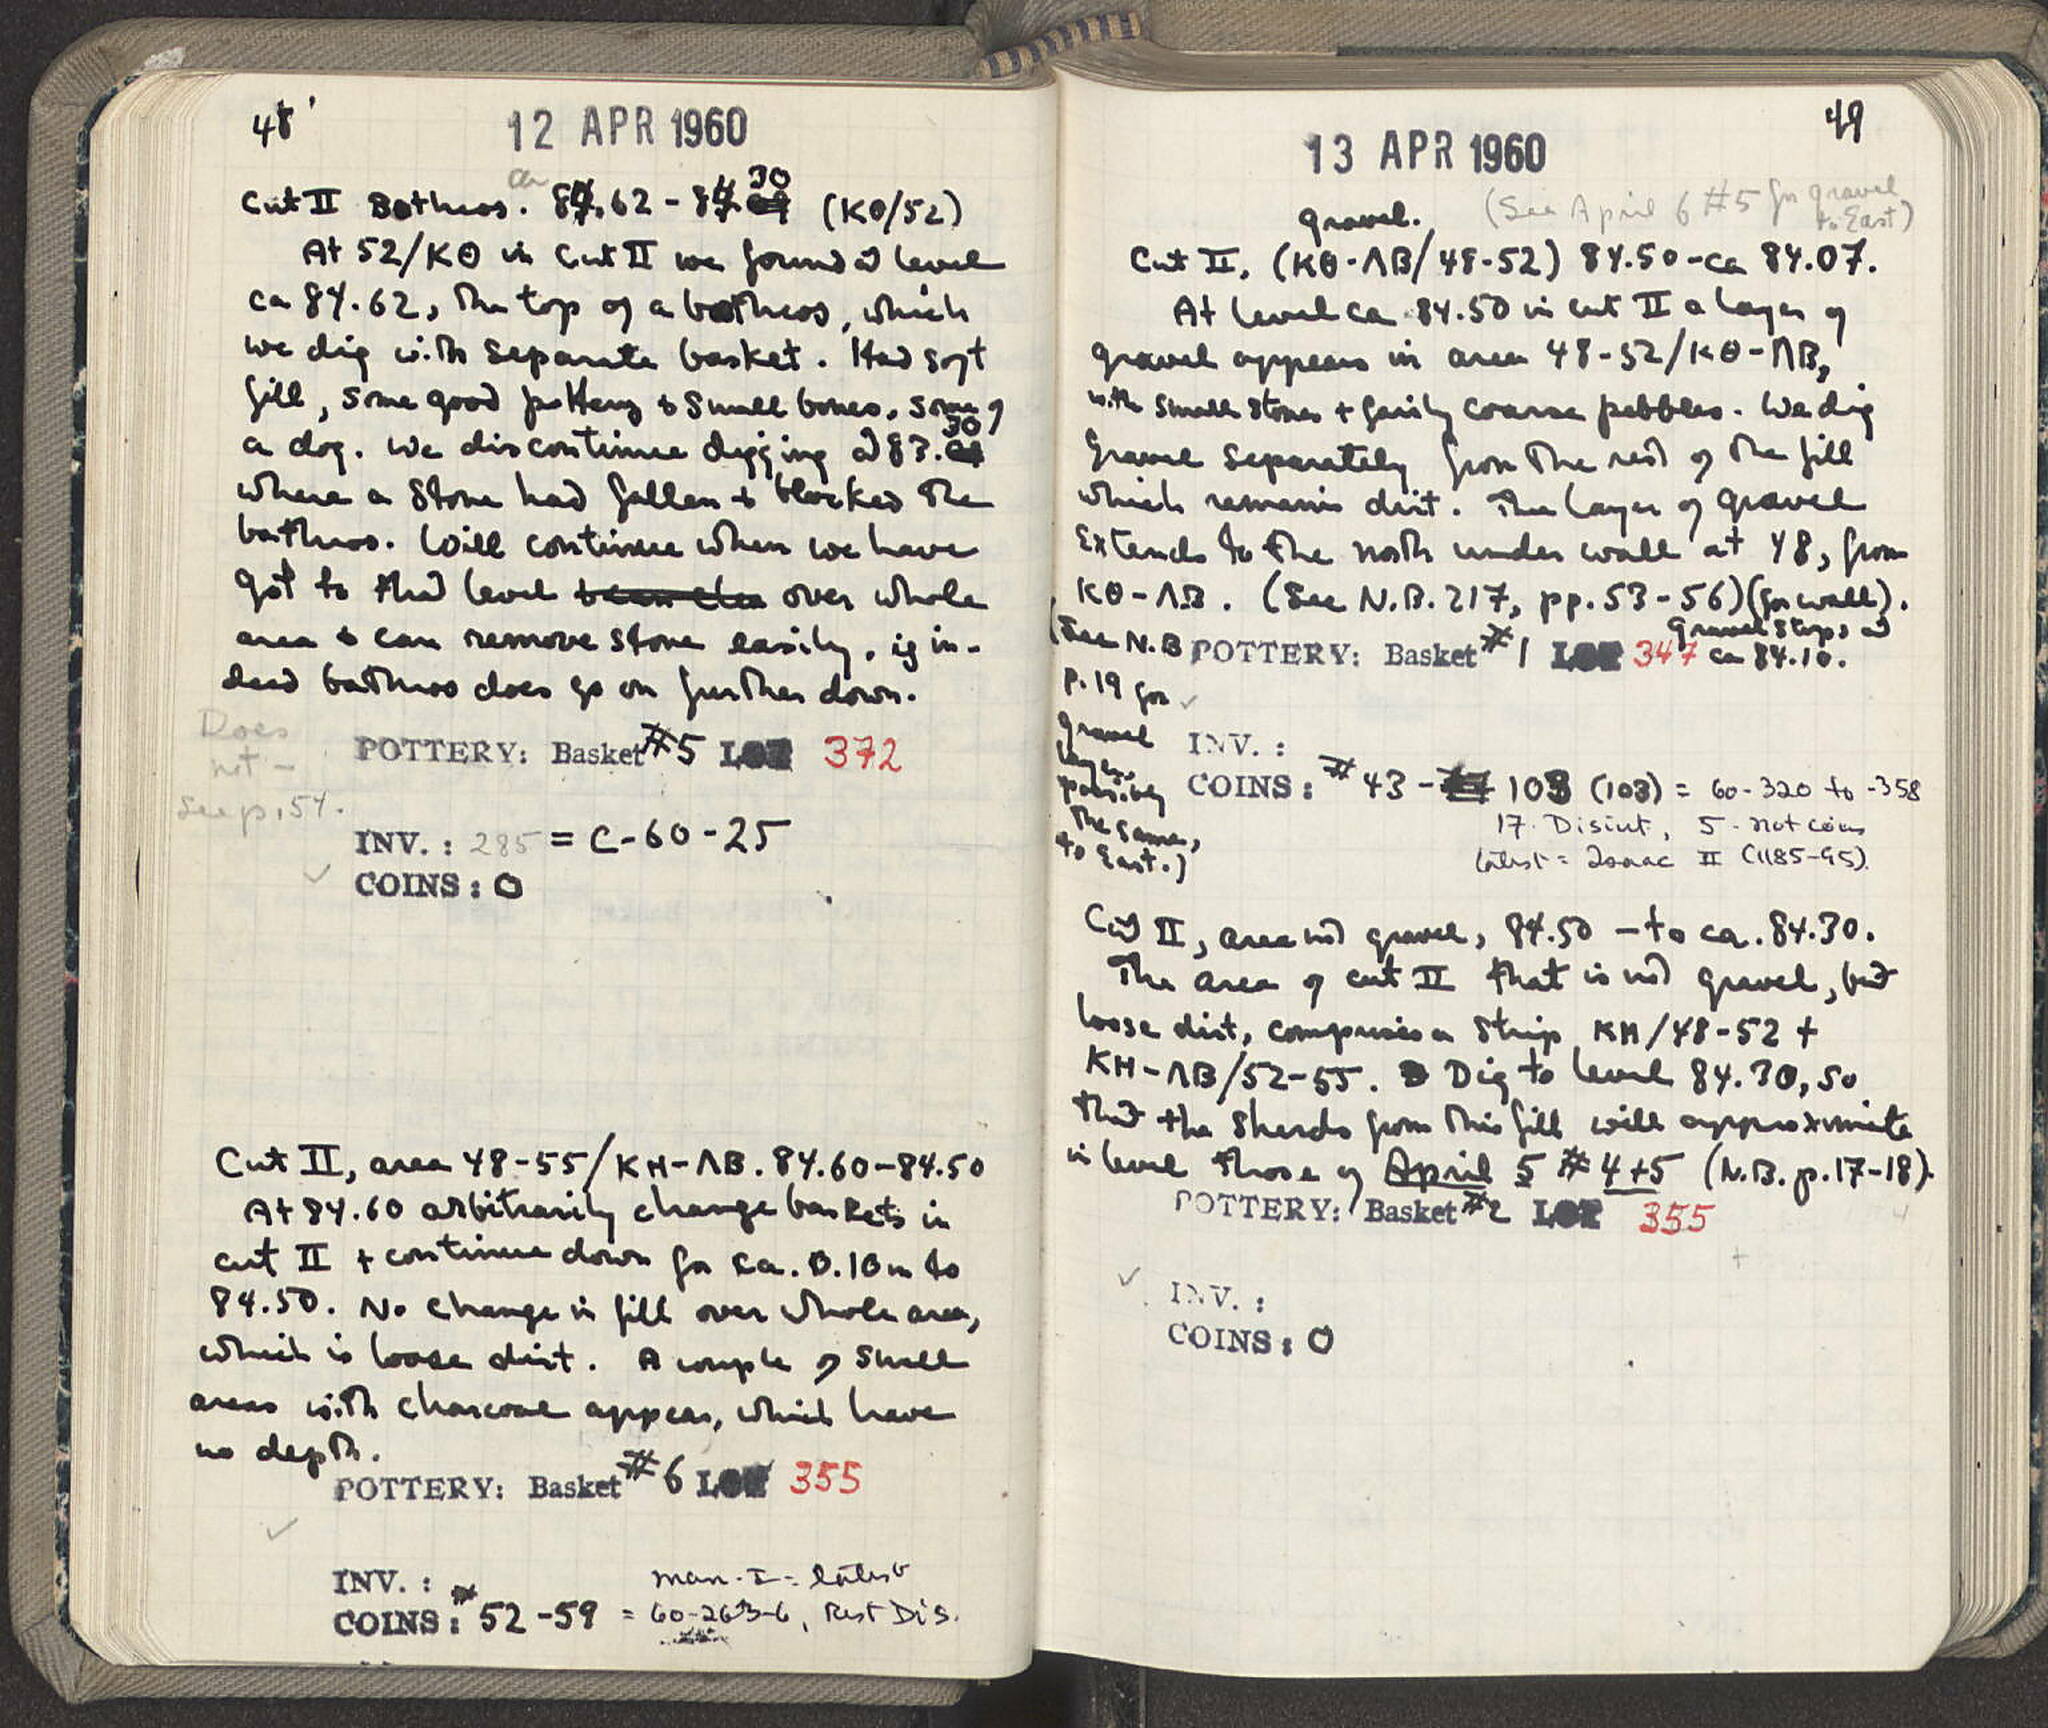 48
12 APR 1960
Cut II Bothros. ca 84.62 - 84.30 (ΚΘ/52)
At 52/ΚΘ in Cut II we found at level
ca 84.62, the top of a bothros, which
we dig with separate basket. Had soft
fill, some good pottery & small bones, some of
a dog. We discontinue digging at 83.30
where a stone had fallen + blocked the
bothros. Will continue when we have
got to that level over whole
area & can remove stone easily, if in-
deed bothros does go on further down.
Does
not -
See p. 54.
POTTERY: Basket #5 LOT 372
INV.: 285 = C-60-25
COINS: 0
Cut II, area 48-55/ΚΗ-ΛΒ. 84.60-84.50
At 84.60 arbitrarily change baskets in
cut II + continue down for ca. 0.10m to
84.50. No change in fill over whole area,
which is loose dirt. A couple of small
areas with charcoal appear, which have
no depth.
POTTERY: Basket #6 LOT 355
INV.: Man. I = latest
COINS: # 52-59 = 60-263-6, Rest Dis.
49
13 APR 1960
(See April 6 #5 for gravel
to East)
gravel.
Cut II, (ΚΘ-ΛΒ/48-52) 84.50-ca 84.07.
At level ca 84.50 in cut II a layer of
gravel appears in area 48-52/ΚΘ-ΛΒ,
with small stones + fairly coarse pebbles. We dig
gravel separately from the rest of the fill
which remains dirt. The layer of gravel
extends to the north under wall at 48, from
ΚΘ-ΛΒ. (See N.B. 217, pp. 53-56) (for wall).
Gravel stops at
ca 84.10.
(See N.B
p. 19 for
gravel
layer,
possibly
the same,
to East.)
POTTERY: Basket #1 LOT 347
INV.:
COINS: # 43 - 103 (103) = 60-320 to -358
17 Disint, 5 - not coins
latest = Isaac II (1185-95).
Cut II, area not gravel, 84.50 - to ca. 84.30.
The area of cut II that is not gravel, but
loose dirt, comprises a strip ΚΗ/48-52 +
ΚΗ-ΛΒ/52-55. Dig to level 84.30, so
that the sherds from this fill will approximate
in level those of April 5 #4+5 (N.B. p. 17-18).
POTTERY: Basket #2 LOT 355
INV.:
COINS: 0